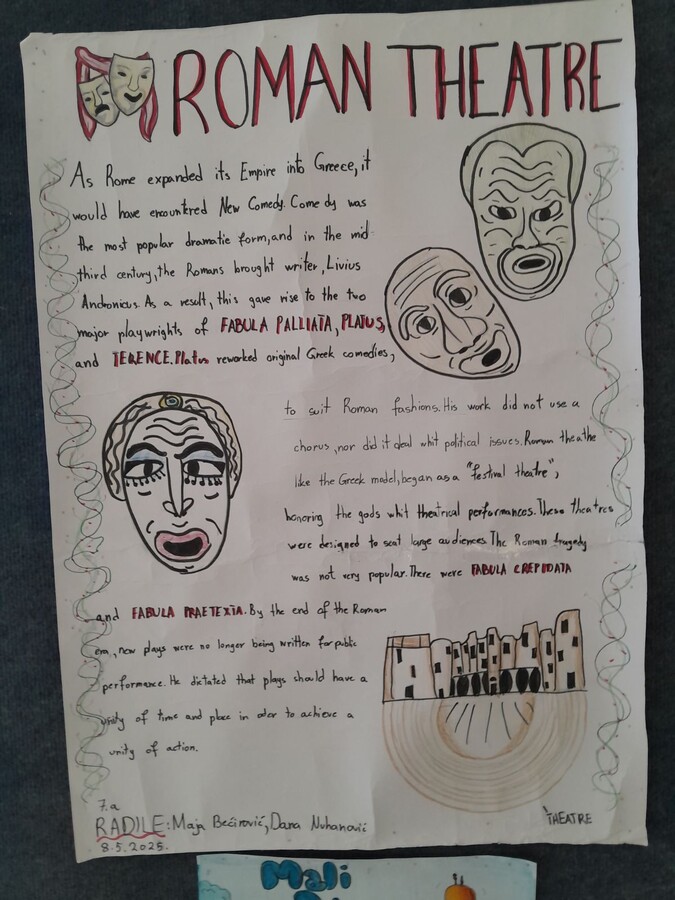 ROMAN THEATRE
As Rome expanded its Empire into Greece, it
would have encountered New Comedy. Comedy was
the most popular dramatic form, and in the mid
third century, the Romans brought writer, Livius
Andronicus. As a result, this gave rise to the two
major playwrights of FABULA PALLIATA, PLATUS,
and TERENCE. Platus reworked original Greek comedies,
to suit Roman fashions. His work did not use a
chorus, nor did it deal whit political issues. Roman theathe
like the Greek model, began as a "festival theatre",
honoring the gods whit theatrical performances. These theatres
were designed to seat large audiences. The Roman tragedy
was not very popular. There were FABULA CREPIDATA
and FABULA PRAETEXTA. By the end of the Roman
era, new plays were no longer being written for public
performance. He dictated that plays should have a
unity of time and place in oder to achieve a
unity of action.
THEATRE
7.a
RADILE: Maja Bećirović, Dana Nuhanović
8.5.2025.
Mali